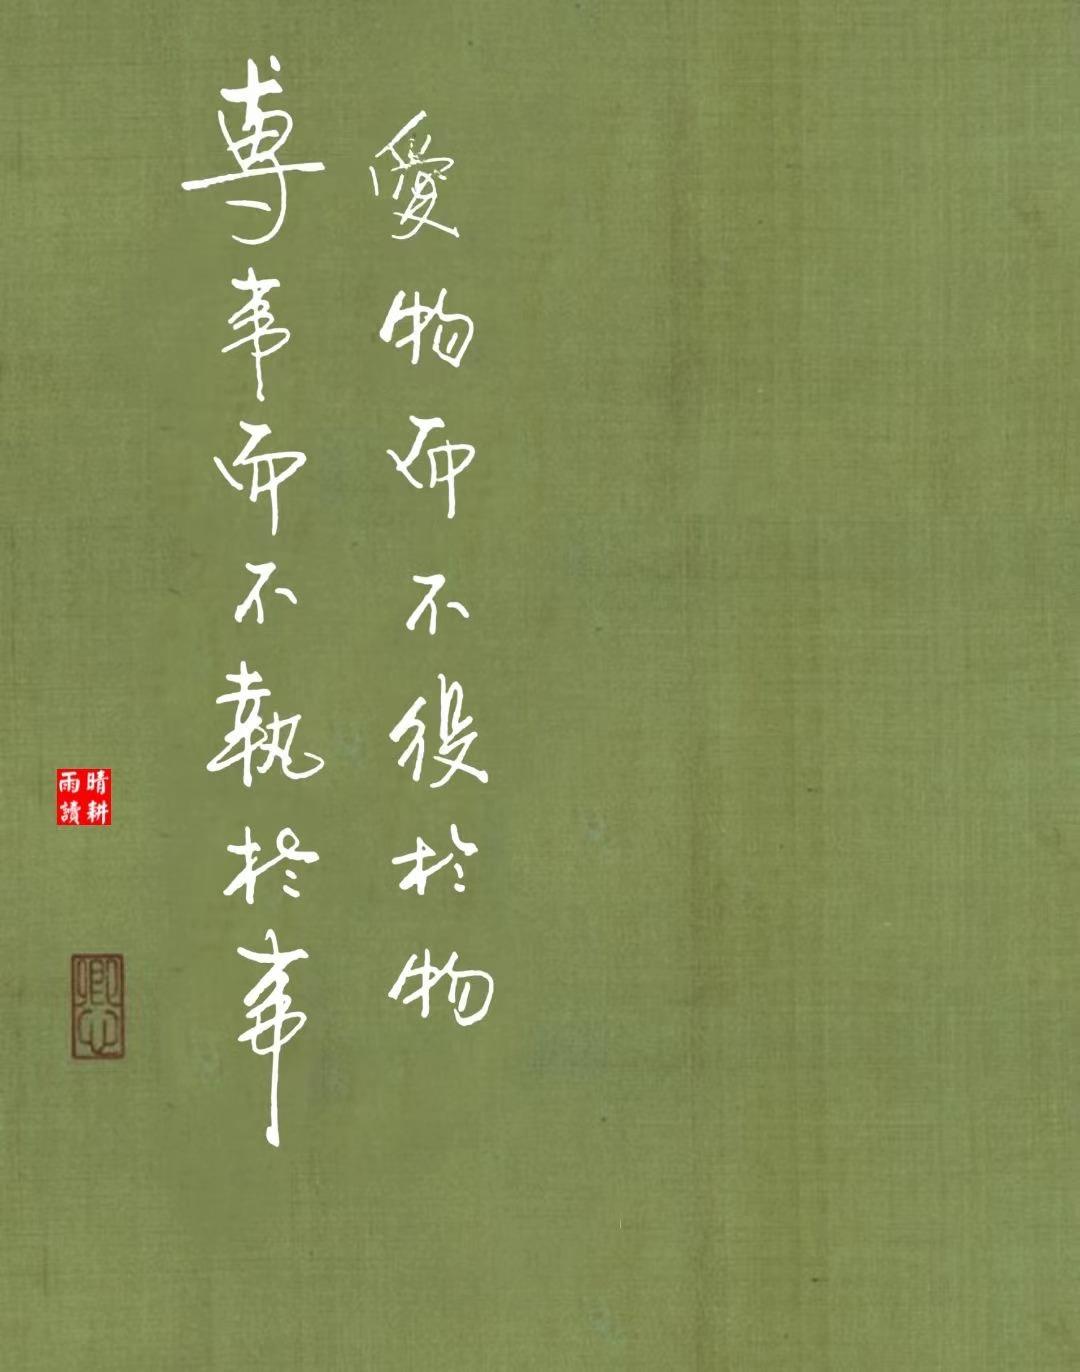 愛物而不役於物
專事而不執於事
晴耕
雨讀